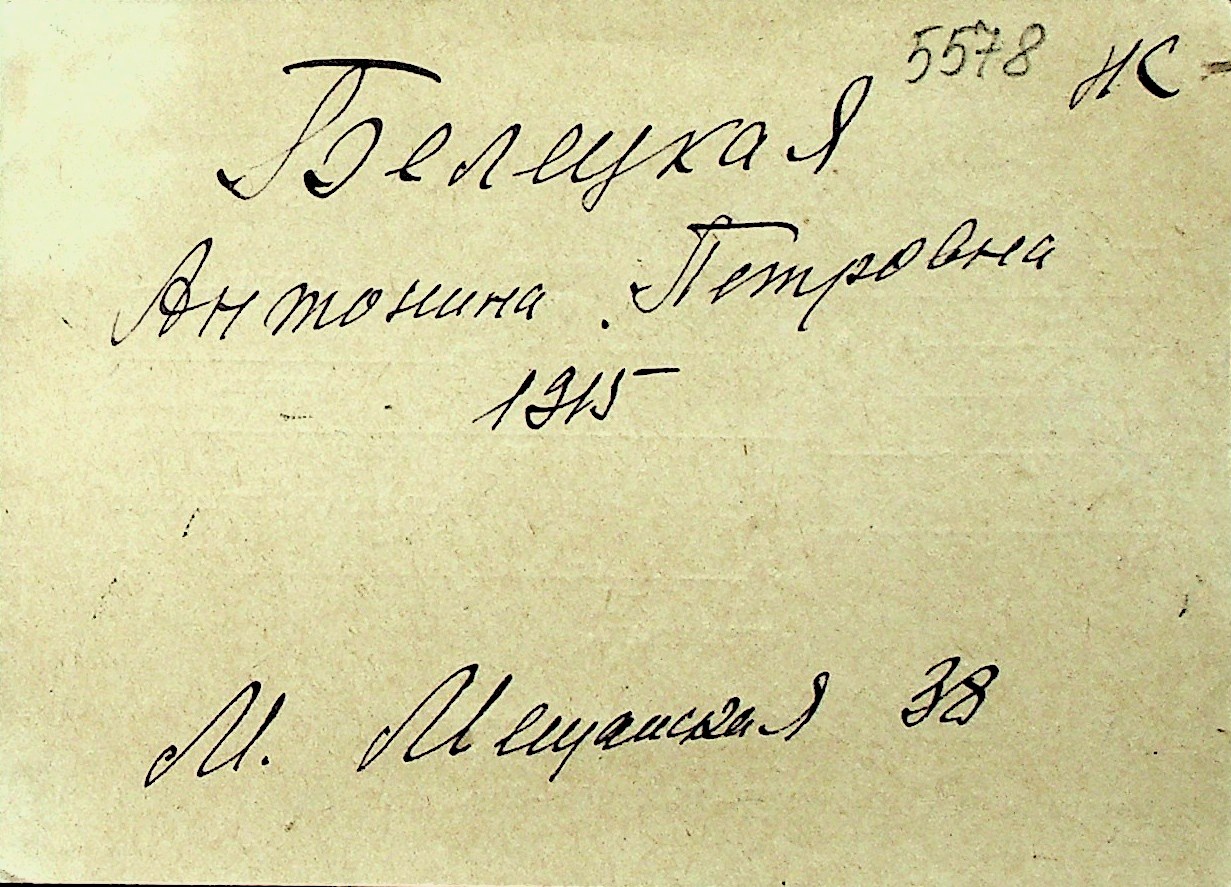 5578 НС-
Белецкая
Антонина Петровна
1915
М. Мещанская 38